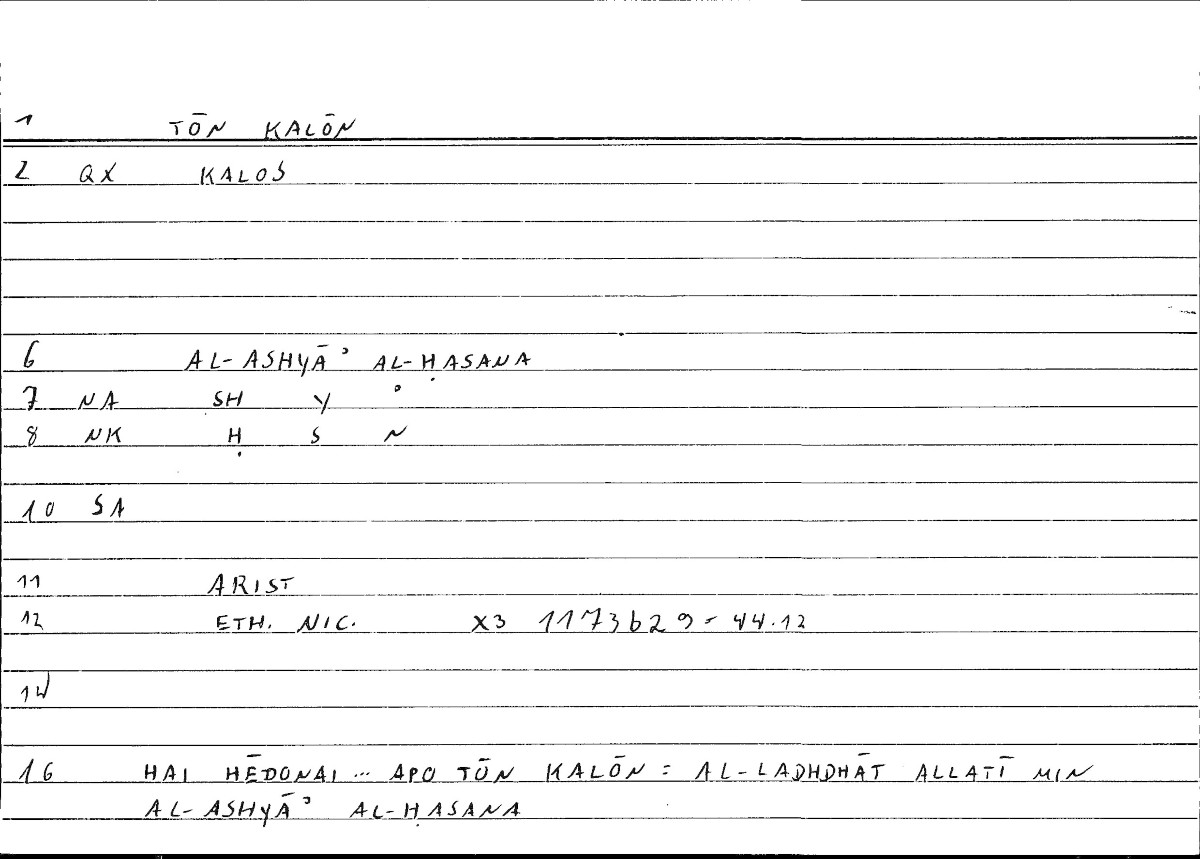 1 TŌN KALŌN
2 QX KALOS
6 AL-ASHYĀʾ AL-ḤASANA
7 NA SH Y ʾ
8 NK Ḥ S N
10 SA
11 ARIST
12 ETH. NIC. X3 1173b29 - 44.12
14
16 HAI HĒDONAI ... APO TŌN KALŌN = AL-LADHDHĀT ALLATĪ MIN
AL-ASHYĀʾ AL-ḤASANA